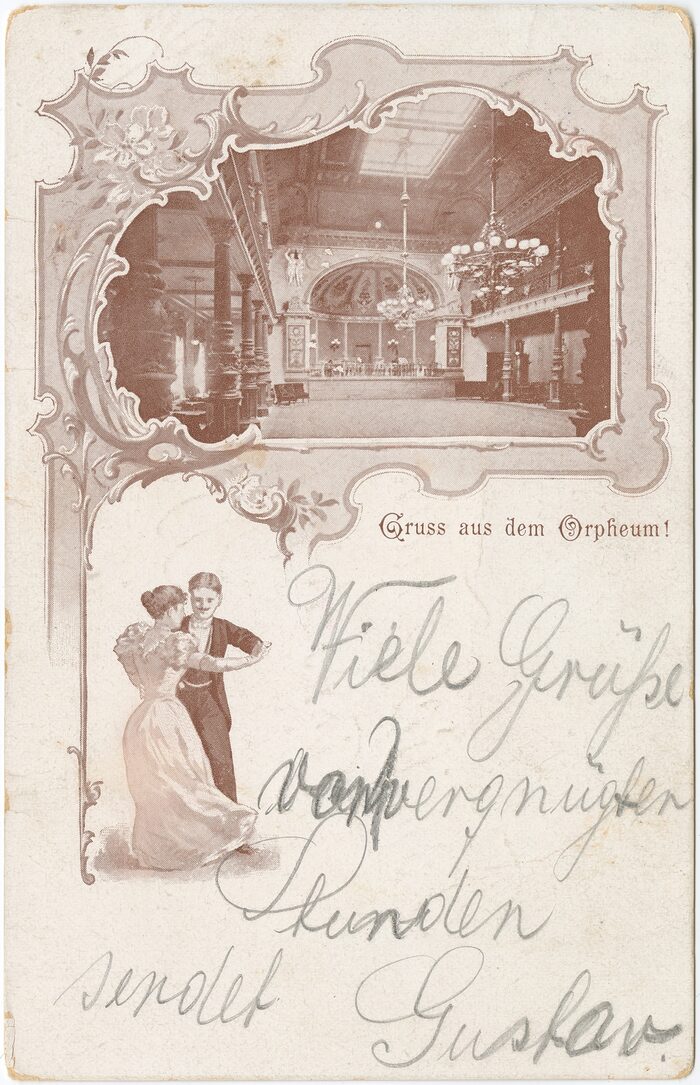 Gruss aus dem Orpheum!
Viele Grüße
vergnügter
Stunden
sendet Gustav.